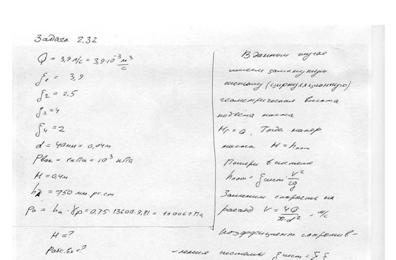 Задача 2.32
Q = 3,9 л/с = 3,9·10⁻³ м³/с
ξ₁ = 3,9
ξ₂ = 2.5
ξ₃ = 4
ξ₄ = 2
d = 40мм = 0,04м
H = 0,4м
= 750 мм рт.ст
H = ?
В данном случае
имеем замкнутую
систему (циркуляционную)
геометрическая высота
подъема
Hг = 0. Тогда напор
насоса H = hпот
Потери в системе
hпот = ξсист V²/2g
Заменим скорость на
расход V = 4Q/πd²
коэффициент сопротив-
-ления системы ξсист =